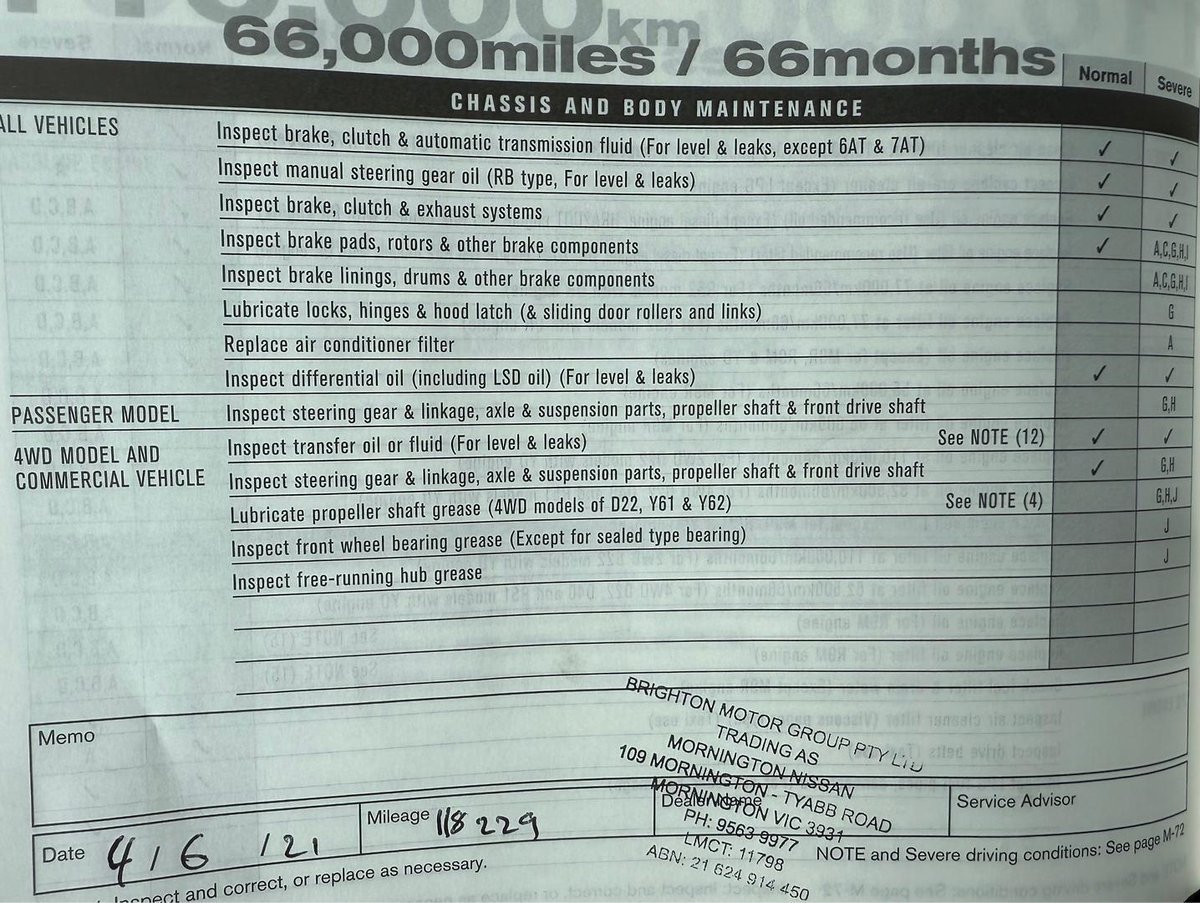 66,000miles / 66months
km
Normal Severe
CHASSIS AND BODY MAINTENANCE
ALL VEHICLES Inspect brake, clutch & automatic transmission fluid (For level & leaks, except 6AT & 7AT) ✓ ✓
Inspect manual steering gear oil (RB type, For level & leaks) ✓ ✓
Inspect brake, clutch & exhaust systems ✓ ✓
Inspect brake pads, rotors & other brake components ✓ A,C,G,H,I
Inspect brake linings, drums & other brake components A,C,G,H,I
Lubricate locks, hinges & hood latch (& sliding door rollers and links) G
Replace air conditioner filter A
Inspect differential oil (including LSD oil) (For level & leaks) ✓ ✓
PASSENGER MODEL Inspect steering gear & linkage, axle & suspension parts, propeller shaft & front drive shaft G,H
4WD MODEL AND COMMERCIAL VEHICLE Inspect transfer oil or fluid (For level & leaks) See NOTE (12) ✓ ✓
Inspect steering gear & linkage, axle & suspension parts, propeller shaft & front drive shaft ✓ G,H
Lubricate propeller shaft grease (4WD models of D22, Y61 & Y62) See NOTE (4) G,H,J
Inspect front wheel bearing grease (Except for sealed type bearing) J
Inspect free-running hub grease J
Memo
BRIGHTON MOTOR GROUP PTY LTD
TRADING AS
MORNINGTON NISSAN
109 MORNINGTON - TYABB ROAD
MORNINGTON VIC 3931
PH: 9563 9977
LMCT: 11798
ABN: 21 624 914 450
Date 4 / 6 / 21
Mileage 118 229
Dealer Name
Service Advisor
NOTE and Severe driving conditions: See page M-72
Inspect and correct, or replace as necessary.